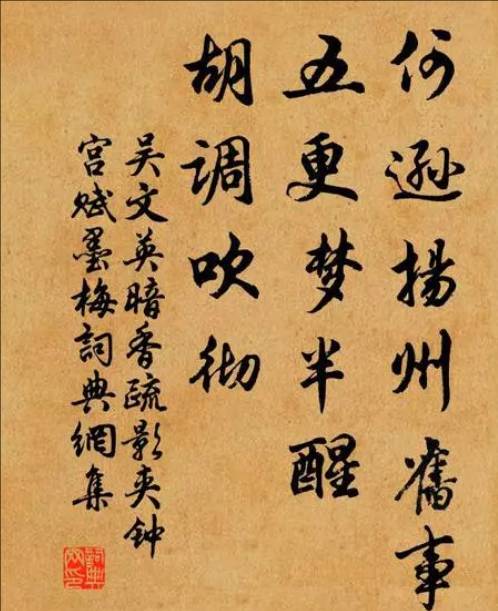 何逊揚州舊事
五更梦半醒
胡调吹彻
吴文英暗香疏影夹钟
宫赋墨梅詞典網集
詞典網印